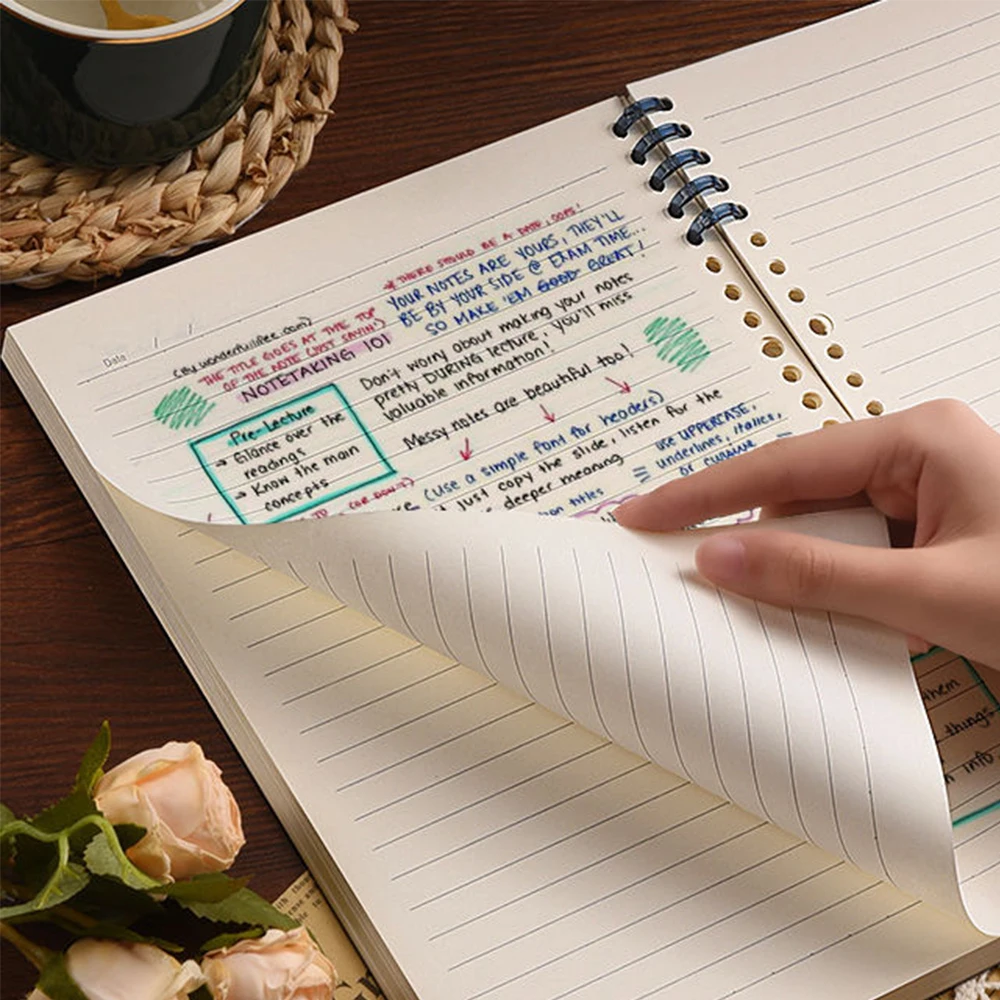 * THERE SHOULD BE A DATE, OOPS!
YOUR NOTES ARE YOURS, THEY'LL
BE BY YOUR SIDE @ EXAM TIME...
SO MAKE 'EM GOOD GREAT!
Date / /
(by wonderfulllee.com)
THE TITLE GOES AT THE TOP
OF THE NOTE (JUST SAYIN')
NOTETAKING 101
Don't worry about making your notes
pretty DURING lecture, you'll miss
valuable information!
Messy notes are beautiful too!
Pre-Lecture
→ Glance over the
readings
→ Know the main
concepts
(use a simple font for headers)
just copy the slide, listen for the
deeper meaning
USE UPPERCASE,
underlines, italics,
or cursive
titles
(OR DON'T)
them
things
info